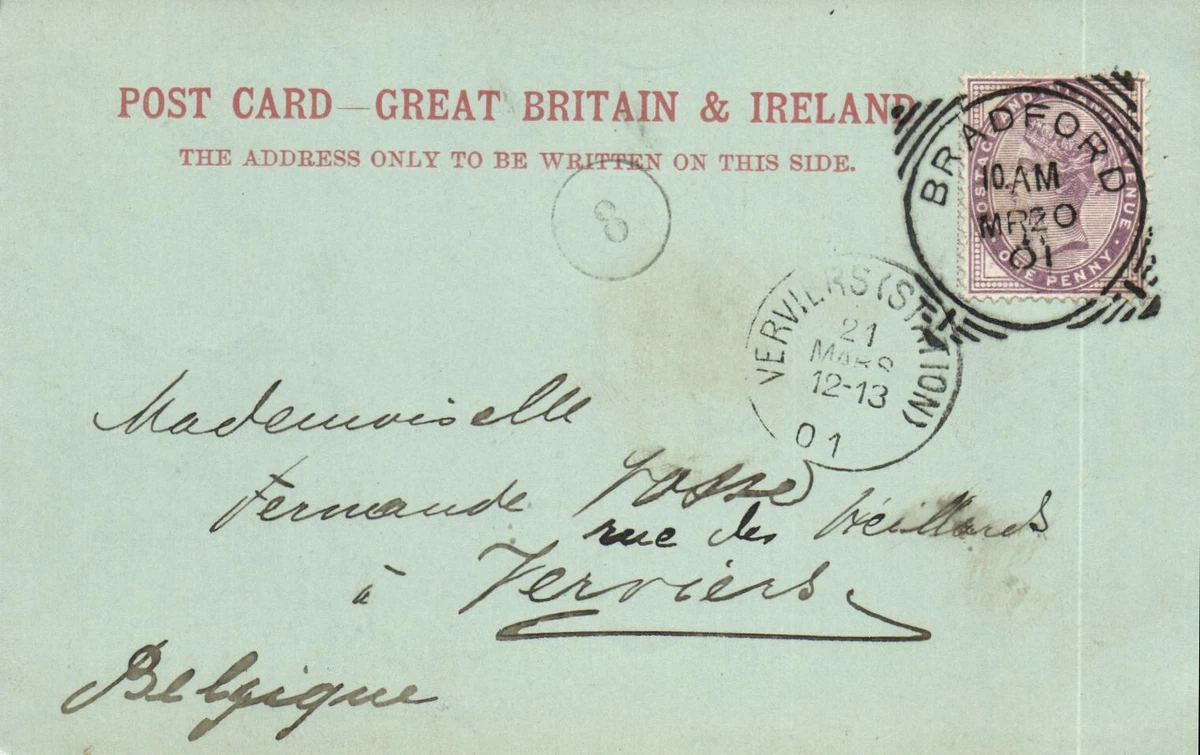 POST CARD—GREAT BRITAIN & IRELAND
THE ADDRESS ONLY TO BE WRITTEN ON THIS SIDE.
BRADFORD
10.AM
MR20
01
POSTAGE AND REVENUE
ONE PENNY
8
VERVIERS (STATION)
21
MARS
12-13
01
Mademoiselle
Fernande
rue des Vieillards
à Verviers
Belgique